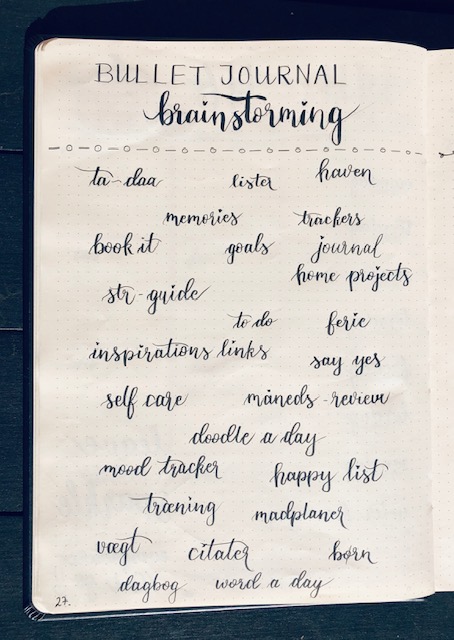 BULLET JOURNAL
brainstorming
ta-daa lister haven
memories trackers
book it goals journal
home projects
str-guide
to do ferie
inspirations links say yes
self care måneds-review
doodle a day
mood tracker happy list
træning madplaner
vægt citater børn
dagbog word a day
27.